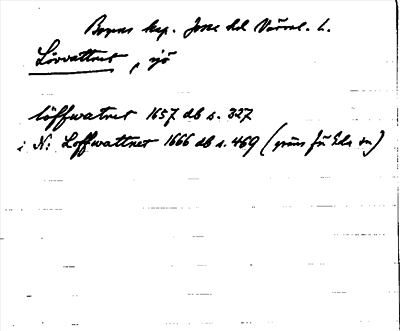 Bogens kap. Jösse hd Värml. L.
Lövvattnet, sjö
löffwatnet 1657 db s. 327
i N: Loffwattnet 1666 db s. 469 (gräns fu Eda sn)